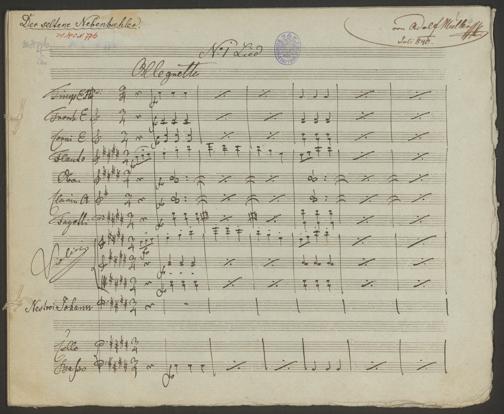 Der seltene Nebenbuhler.
von Adolf Müller
Juli 1840.
No 1 Lied
Allegretto
Timp E H
Tromb E
Corni E
Flauto
Oboi
Clarini A
Fagotti
Violini
Nestroi: Johann
Cello
Basso